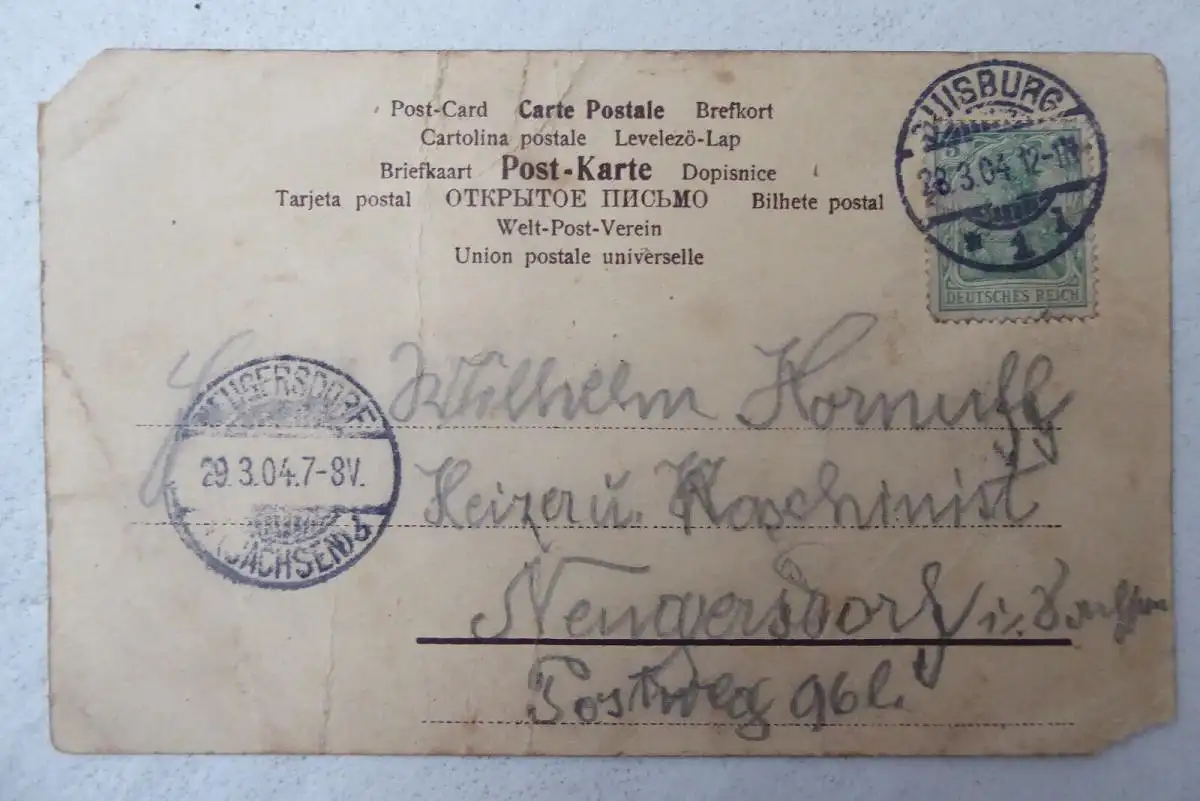 Post-Card Carte Postale Brefkort
Cartolina postale Levelezö-Lap
Briefkaart Post-Karte Dopisnice
Tarjeta postal ОТКРЫТОЕ ПИСЬМО Bilhete postal
Welt-Post-Verein
Union postale universelle
DUISBURG
28.3.04.12-1N.
* 1 1
DEUTSCHES REICH
NEUGERSDORF
29.3.04.7-8V.
(SACHSEN) b
Wilhelm Hornuff
Heizer u. Maschinist
Neugersdorf i. Sachsen
Postweg 96 l.